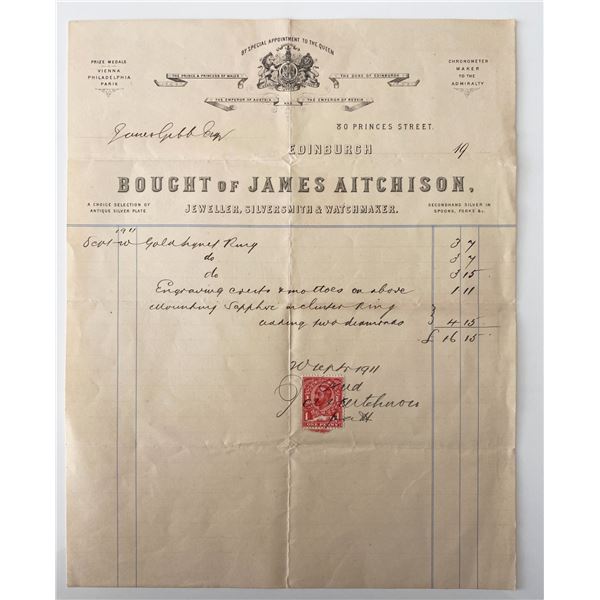 BY SPECIAL APPOINTMENT TO THE QUEEN
PRIZE MEDALS
VIENNA
PHILADELPHIA
PARIS
THE PRINCE & PRINCESS OF WALES
THE DUKE OF EDINBURGH
THE EMPEROR OF AUSTRIA AND THE EMPEROR OF RUSSIA
CHRONOMETER
MAKER
TO THE
ADMIRALTY
James Gibb Esqr
80 PRINCES STREET.
EDINBURGH 19
BOUGHT OF JAMES AITCHISON,
A CHOICE SELECTION OF
ANTIQUE SILVER PLATE
JEWELLER, SILVERSMITH & WATCHMAKER.
SECONDHAND SILVER IN
SPOONS, FORKS &c.
1911
Sept Gold Signet Ring 3 7
do 3 7
do 3 15
Engraving crests & mottoes on above 1 11
Mounting Sapphire in cluster Ring
adding two diamonds 4 15
£ 16 15
Sept 1911
Aitchison
ONE PENNY